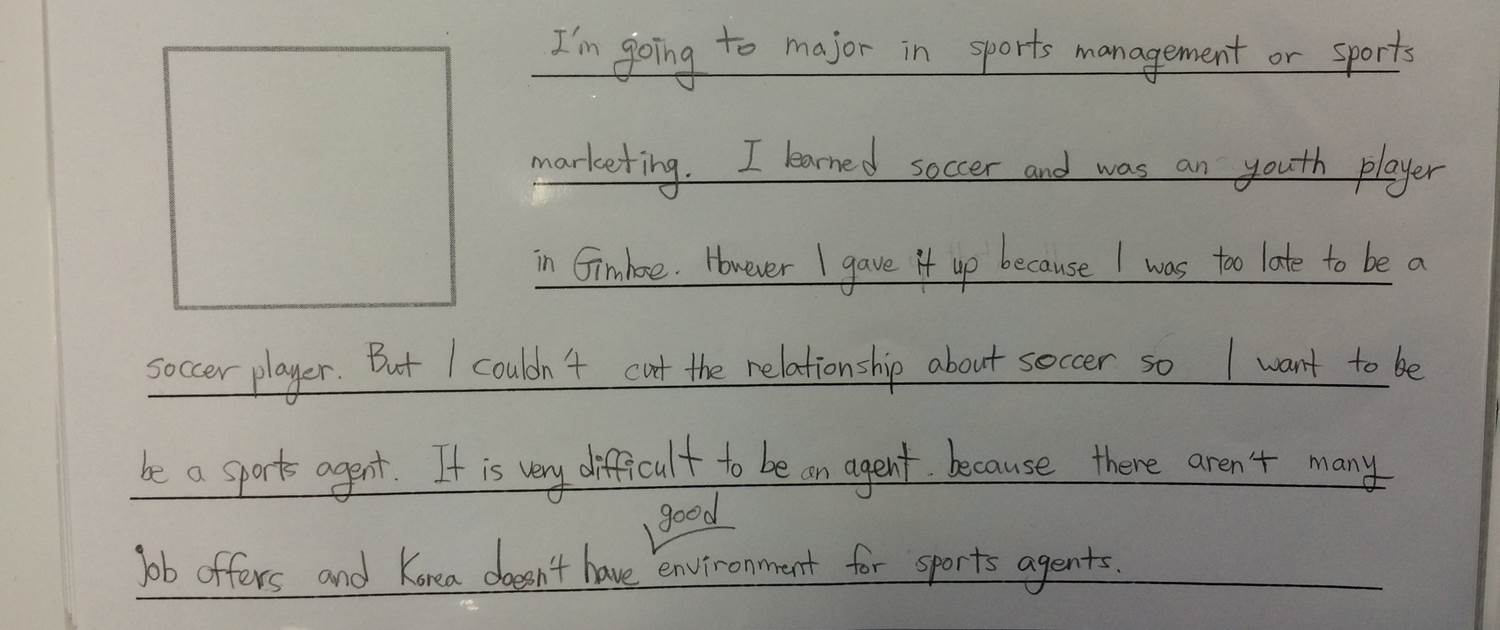 I'm going to major in sports management or sports
marketing. I learned soccer and was an youth player
in Gimhae. However I gave it up because I was too late to be a
soccer player. But I couldn't cut the relationship about soccer so I want to be
be a sports agent. It is very difficult to be an agent. because there aren't many
good
Job offers and Korea doesn't have environment for sports agents.